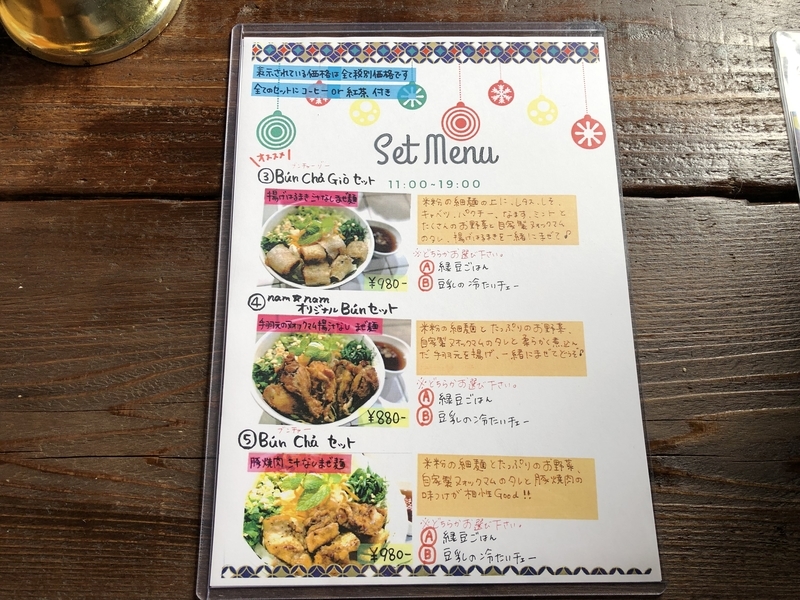 表示されている価格は全て税別価格です
全てのセットにコーヒー or 紅茶 付き
Set Menu
11:00-19:00
\オススメ/
ブンチャーゾー
③Bún Chả Giò セット
揚げはるまき 汁なしまぜ麺
¥980-
米粉の細麺の上に、レタス、しそ、
キャベツ、パクチー、なます、ミントと
たくさんのお野菜と自家製ヌォックマム
のタレ、揚げはるまきを一緒にまぜて♪
※どちらかお選び下さい。
Ⓐ 緑豆ごはん
Ⓑ 豆乳の冷たいチェー
④ nam☆nam
オリジナル Bún セット
手羽元のヌォックマム揚げ汁なし まぜ麺
¥880-
米粉の細麺とたっぷりのお野菜、
自家製ヌォックマムのタレと柔らかく煮込ん
だ手羽元を揚げ、一緒にまぜてどうぞ♪
※どちらかお選び下さい。
Ⓐ 緑豆ごはん
Ⓑ 豆乳の冷たいチェー
ブンチャー
⑤Bún Chả セット
豚焼肉 汁なしまぜ麺
¥980-
米粉の細麺とたっぷりのお野菜、
自家製ヌォックマムのタレと豚焼肉の
味つけが相性Good!!
※どちらかお選び下さい。
Ⓐ 緑豆ごはん
Ⓑ 豆乳の冷たいチェー